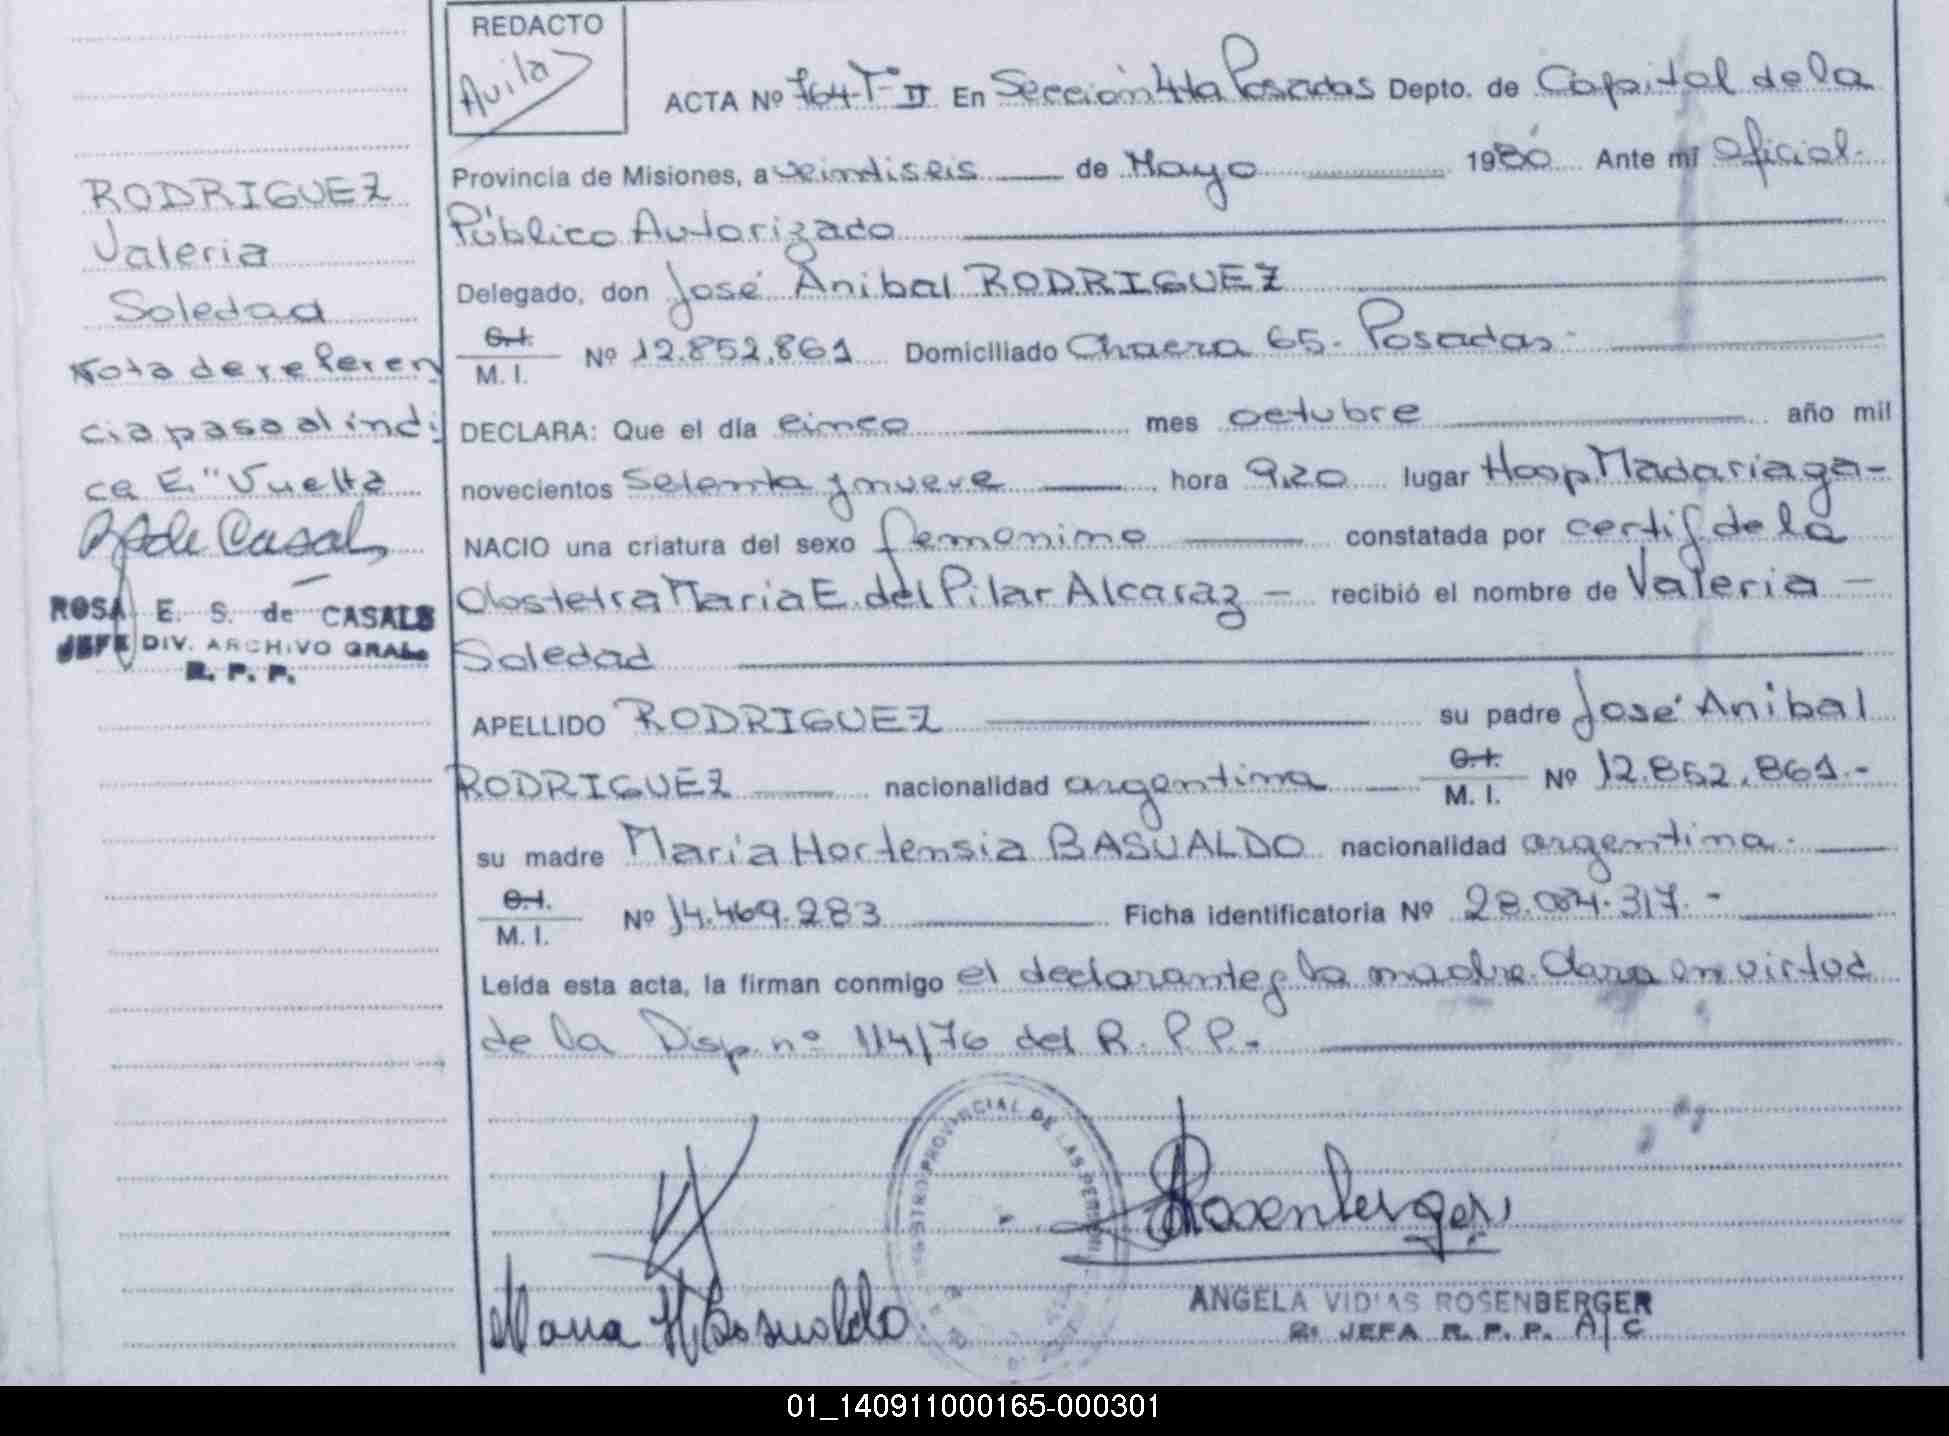 REDACTO
Avila
ACTA Nº 764-Tº II En Sección 4ta Posadas Depto. de Capital de la
Provincia de Misiones, a veintiseis de Mayo 1980 Ante mí Oficial
Público Autorizado
Delegado, don José Anibal RODRIGUEZ
C.I.
M. I. Nº 12.852.861 Domiciliado Chacra 65- Posadas-
DECLARA: Que el día cinco mes octubre año mil
novecientos setenta y nueve hora 9,20 lugar Hosp. Madariaga-
NACIO una criatura del sexo femenino constatada por certif. de la
Obstetra Maria E. del Pilar Alcaraz - recibió el nombre de Valeria -
Soledad
APELLIDO RODRIGUEZ su padre José Anibal
RODRIGUEZ nacionalidad argentina C.I.
M. I. Nº 12.852.861.-
su madre María Hortensia BASUALDO nacionalidad argentina.
C.I.
M. I. Nº 14.469.283 Ficha identificatoria Nº 28.084.317.-
Leída esta acta, la firman conmigo el declarante y la madre en virtud
de la Disp. nº 114/76 del R. P. P.-
RODRIGUEZ
Valeria
Soledad
Nota de referen
cia pasa al indi
ce E. "Vuelta
R S de Casals
ROSA E. S. de CASALS
JEFE DIV. ARCHIVO GRAL.
R. P. P.
REGISTRO PROVINCIAL DE LAS PERSONAS
Rosenberger
Maria H Basualdo
ANGELA VIDIAS ROSENBERGER
2º JEFA R. P. P. A/C
01_140911000165-000301